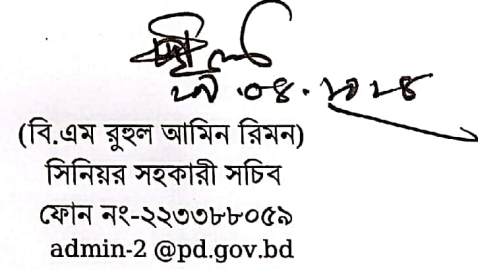 .০৪.২০২৪
(বি.এম রুহুল আমিন রিমন)
সিনিয়র সহকারী সচিব
ফোন নং-২২৩৩৮৮০৫৯
admin-2 @pd.gov.bd